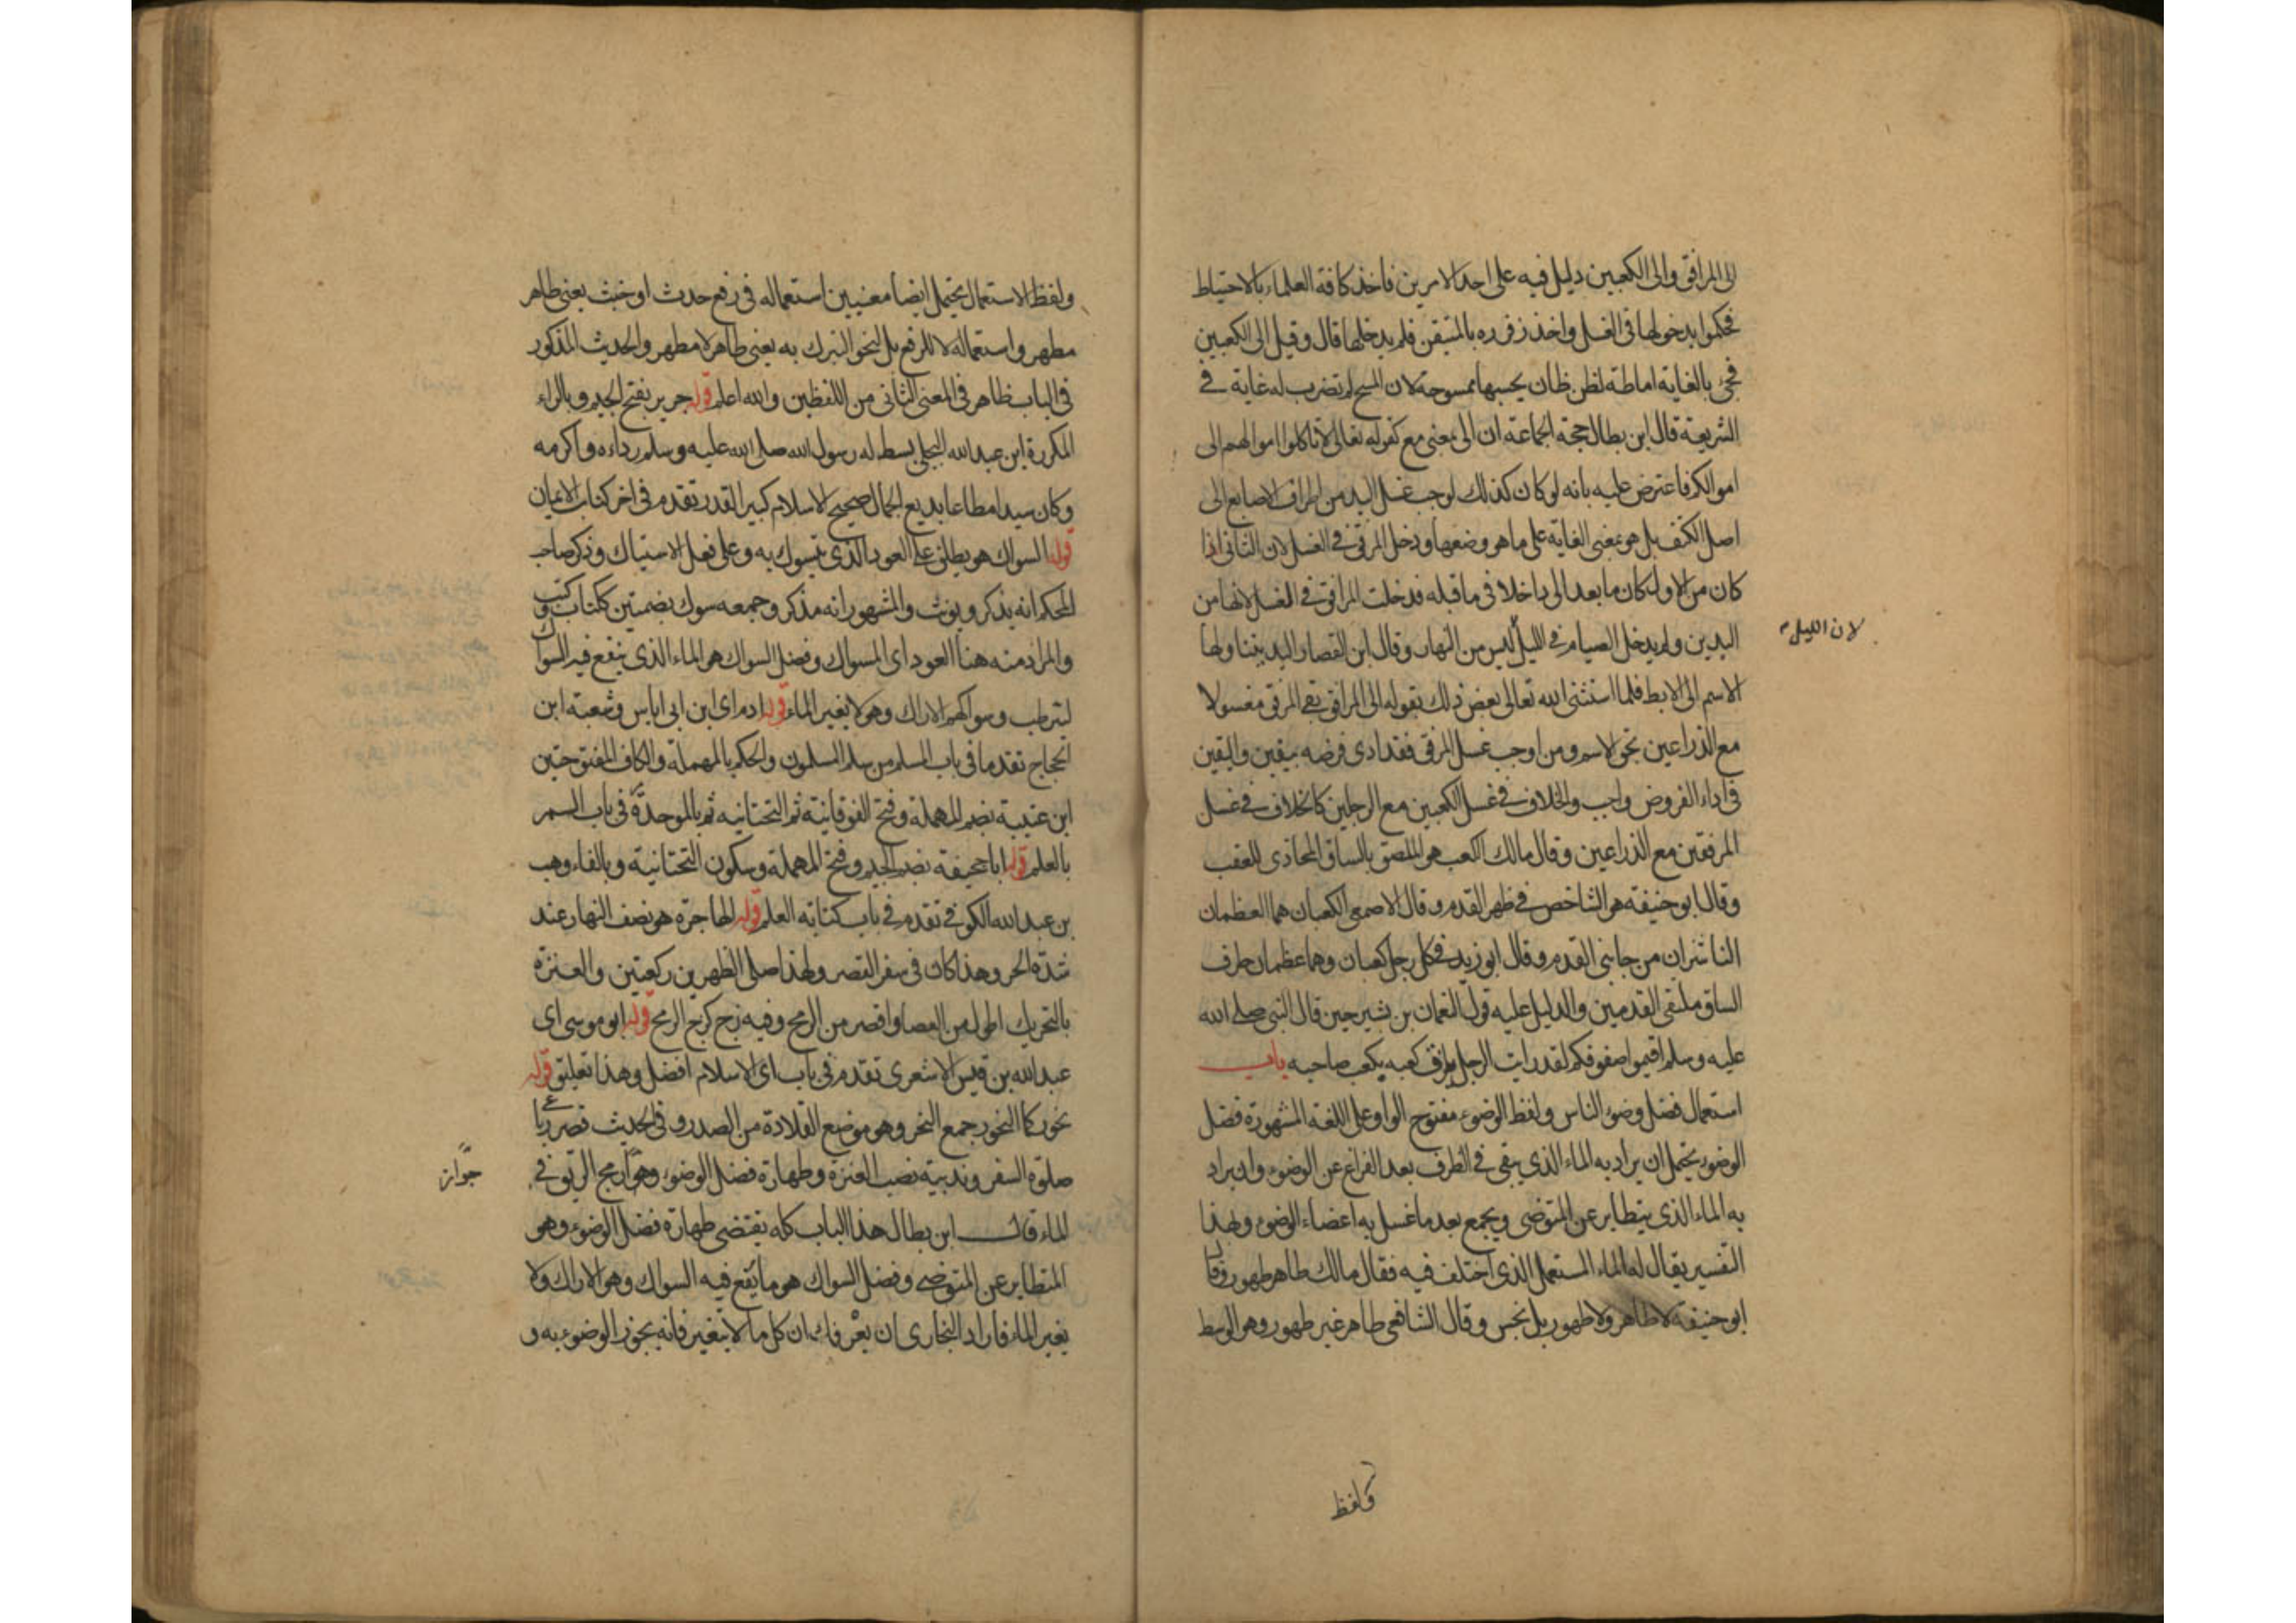 الى المرافق والى الكعبين دليل فيه على احد الامرين فاخذ كافة العلماء بالاحتياط
فحكموا بدخولها فى الغسل واخذ زفر ره بالمتيقن فلم يدخلها قال وقيل الى الكعبين
فجئ بالغاية اماطة لظن ظان يحسبها ممسوحة لان المسح لم تضرب له غاية فى
الشريعة قال ابن بطال حجة الجماعة ان الى بمعنى مع كقوله تعالى لا تاكلوا اموالهم الى
اموالكم فاعترض عليه بانه لو كان كذلك لوجب غسل اليد من اطراف الاصابع الى
اصل الكتف بل هو بمعنى الغاية على ما هو وضعها ودخل المرفق فى الغسل لان الثانى اذا
كان من الاول كان ما بعد الى داخلا فى ما قبله فدخلت المرافق فى الغسل لانها من
اليدين ولم يدخل الصيام فى الليل ليس من النهار وقال ابن القصار اليد يتناولها
لان الليل
الاسم الى الابط فلما استثنى الله تعالى بعض ذلك بقوله الى المرافق بقى المرفق مغسولا
مع الذراعين بحق الاسم ومن اوجب غسل المرفق فقد ادى فرضه بيقين واليقين
فى اداء الفروض واجب والخلاف فى غسل الكعبين مع الرجلين كالخلاف فى غسل
المرفقين مع الذراعين وقال مالك الكعب هو الملصق بالساق المحاذى للعقب
وقال ابو حنيفة هو الشاخص فى ظهر القدم وقال الاصمعى الكعبان هما العظمان
الناشزان من جانبى القدم وقال ابو زيد فى كل رجل كعبان وهما عظمان طرف
الساق ملتقى القدمين والدليل عليه قول النعمان بن بشير حين قال النبى صلى الله
عليه وسلم اقيموا صفوفكم لقد رايت الرجل يلزق كعبه بكعب صاحبه باب
استعمال فضل وضوء الناس ولفظ الوضوء مفتوح الواو على اللغة المشهورة فضل
الوضوء يحتمل ان يراد به الماء الذى يبقى فى الظرف بعد الفراغ عن الوضوء وان يراد
به الماء الذى يتطاير عن المتوضى ويجمع بعد ما غسل به اعضاء الوضوء ولهذا
التفسير يقال له الماء المستعمل الذى اختلف فيه فقال مالك طاهر طهور وقال
ابو حنيفة لا طاهر ولا طهور بل نجس وقال الشافعى طاهر غير طهور وهو الوسط
ولفظ
ولفظ الاستعمال يحتمل ايضا معنيين استعماله فى رفع حدث او خبث يعنى طاهر
مطهر واستعماله لا للرفع بل لنحو التبرك به يعنى طاهر لا مطهر والحديث المذكور
فى الباب ظاهر فى المعنى الثانى من اللفظين والله اعلم قوله جرير بفتح الجيم وبالراء
المكررة ابن عبد الله البجلى بسط له رسول الله صلى الله عليه وسلم رداءه واكرمه
وكان سيدا مطاعا بديع الجمال صحيح الاسلام كبير القدر تقدم فى اخر كتاب الايمان
قوله السواك هو يطلق على العود الذى يتسوك به وعلى فعل الاستياك وذكر صاحب
المحكم انه يذكر ويونث والمشهور انه مذكر وجمعه سوك بضمتين ككتاب وكتب
والمراد منه هنا العود اى المسواك وفضل السواك هو الماء الذى ينقع فيه السواك
ليترطب وسواكهم الاراك وهو لا يغير الماء قوله ادم اى ابن ابى اياس وشعبة ابن
الحجاج تقدما فى باب المسلم من سلم المسلمون والحكم بالمهملة والكاف المفتوحتين
ابن عتيبة بضم المهملة وفتح الفوقانية ثم التحتانية ثم بالموحدة فى باب السمر
بالعلم قوله ابا جحيفة بضم الجيم وفتح المهملة وسكون التحتانية وبالفاء وهب
بن عبد الله الكوفى تقدم فى باب كتابة العلم قوله الهاجرة هو نصف النهار عند
شدة الحر وهذا كان فى سفر القصر ولهذا صلى الظهرين ركعتين والعنزة
بالتحريك اطول من العصا واقصر من الرمح وفيه زج كزج الرمح قوله ابو موسى اى
عبد الله بن قيس الاشعرى تقدم فى باب اى الاسلام افضل وهذا تعليق قوله
نحوركما النحور جمع النحر وهو موضع القلادة من الصدر وفى الحديث قصر
صلوة السفر وندبية نصب العنزة وطهارة فضل الوضوء وهو مج الريق فى
جواز
الماء قال ابن بطال هذا الباب كله يقتضى طهارة فضل الوضوء وهو
المتطاير عن المتوضى وفضل السواك هو ما يقع فيه السواك وهو الاراك ولا
يغير الماء فاراد البخارى ان يعرفك ان كل ما لا يتغير فانه يجوز الوضوء به و